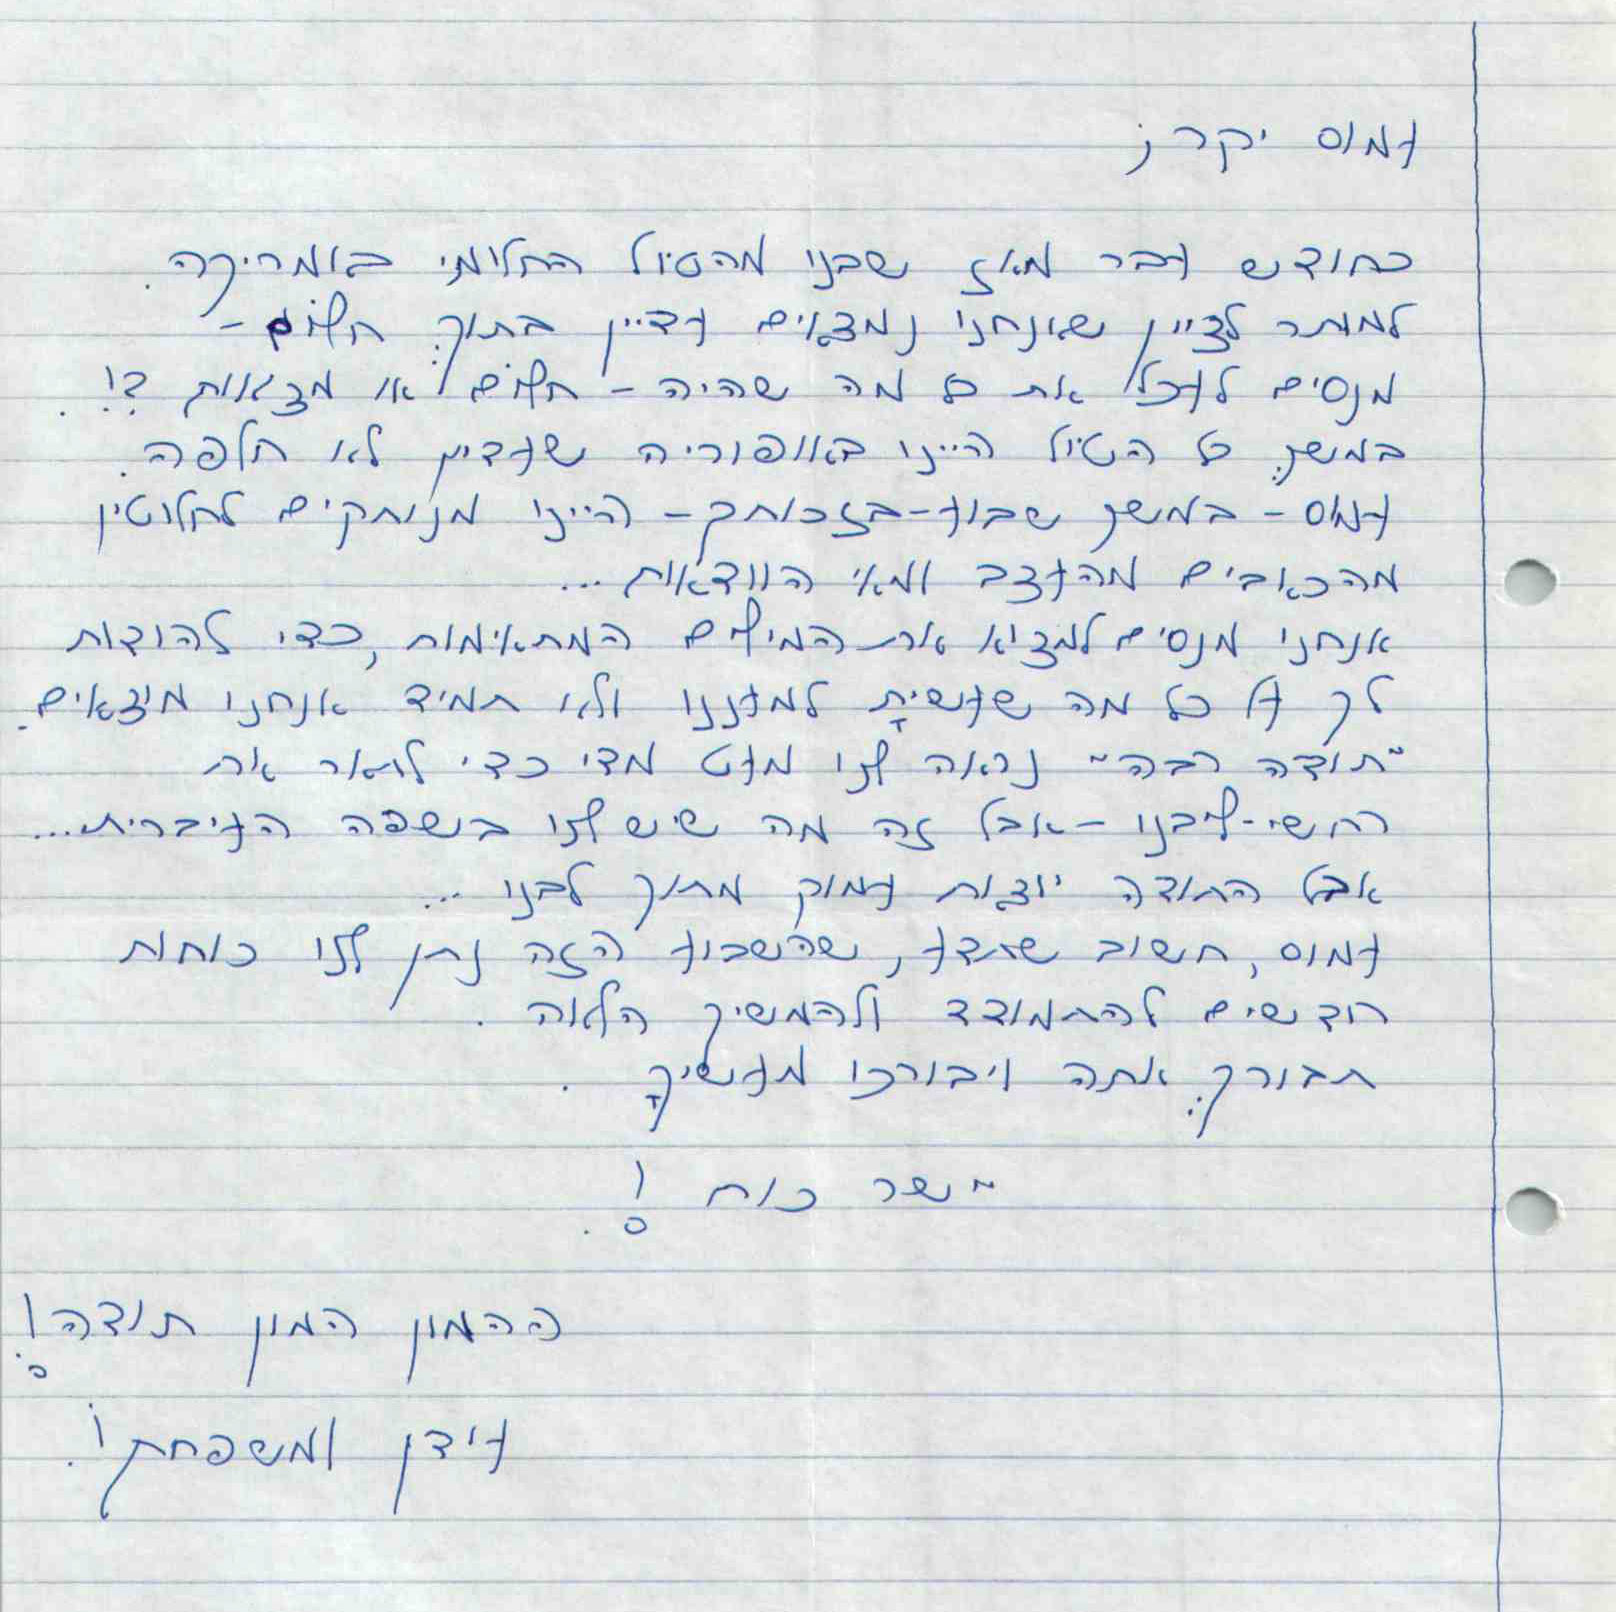 עמוס יקר;
כחודש עבר מאז שבנו מהטיול החלומי באמריקה.
למותר לציין שאנחנו נמצאים עדיין בתוךְ חלום -
מנסים לעכל את כל מה שהיה - חלום או מציאות ?!.
במשךְ כל הטיול היינו באופוריה שעדיין לא חלפה.
עמוס - במשך שבוע - בזכותך - היינו מנותקים לחלוטין
מהכאבים מהעצב ומאי הוודאות ...
אנחנו מנסים למצוא את המילים המתאימות, כדי להודות
לך על כל מה שעשיתָ למעננו ולא תמיד אנחנו מוצאים.
"תודה רבה" נראה לנו מעט מדי כדי לתאר את
רחשי-ליבנו - אבל זה מה שיש לנו בשפה העיברית...
אבל התודה יוצאת עמוק מתוך לבנו ...
עמוס, חשוב שתדע, שהשבוע הזה נתן לנו כוחות
חדשים להתמודד ולהמשיך הלאה .
תבורךְ אתה ויבורכו מעשיךָ .
יישר כוח !.
ההמון המון תודה!
עידן ומשפחתו.